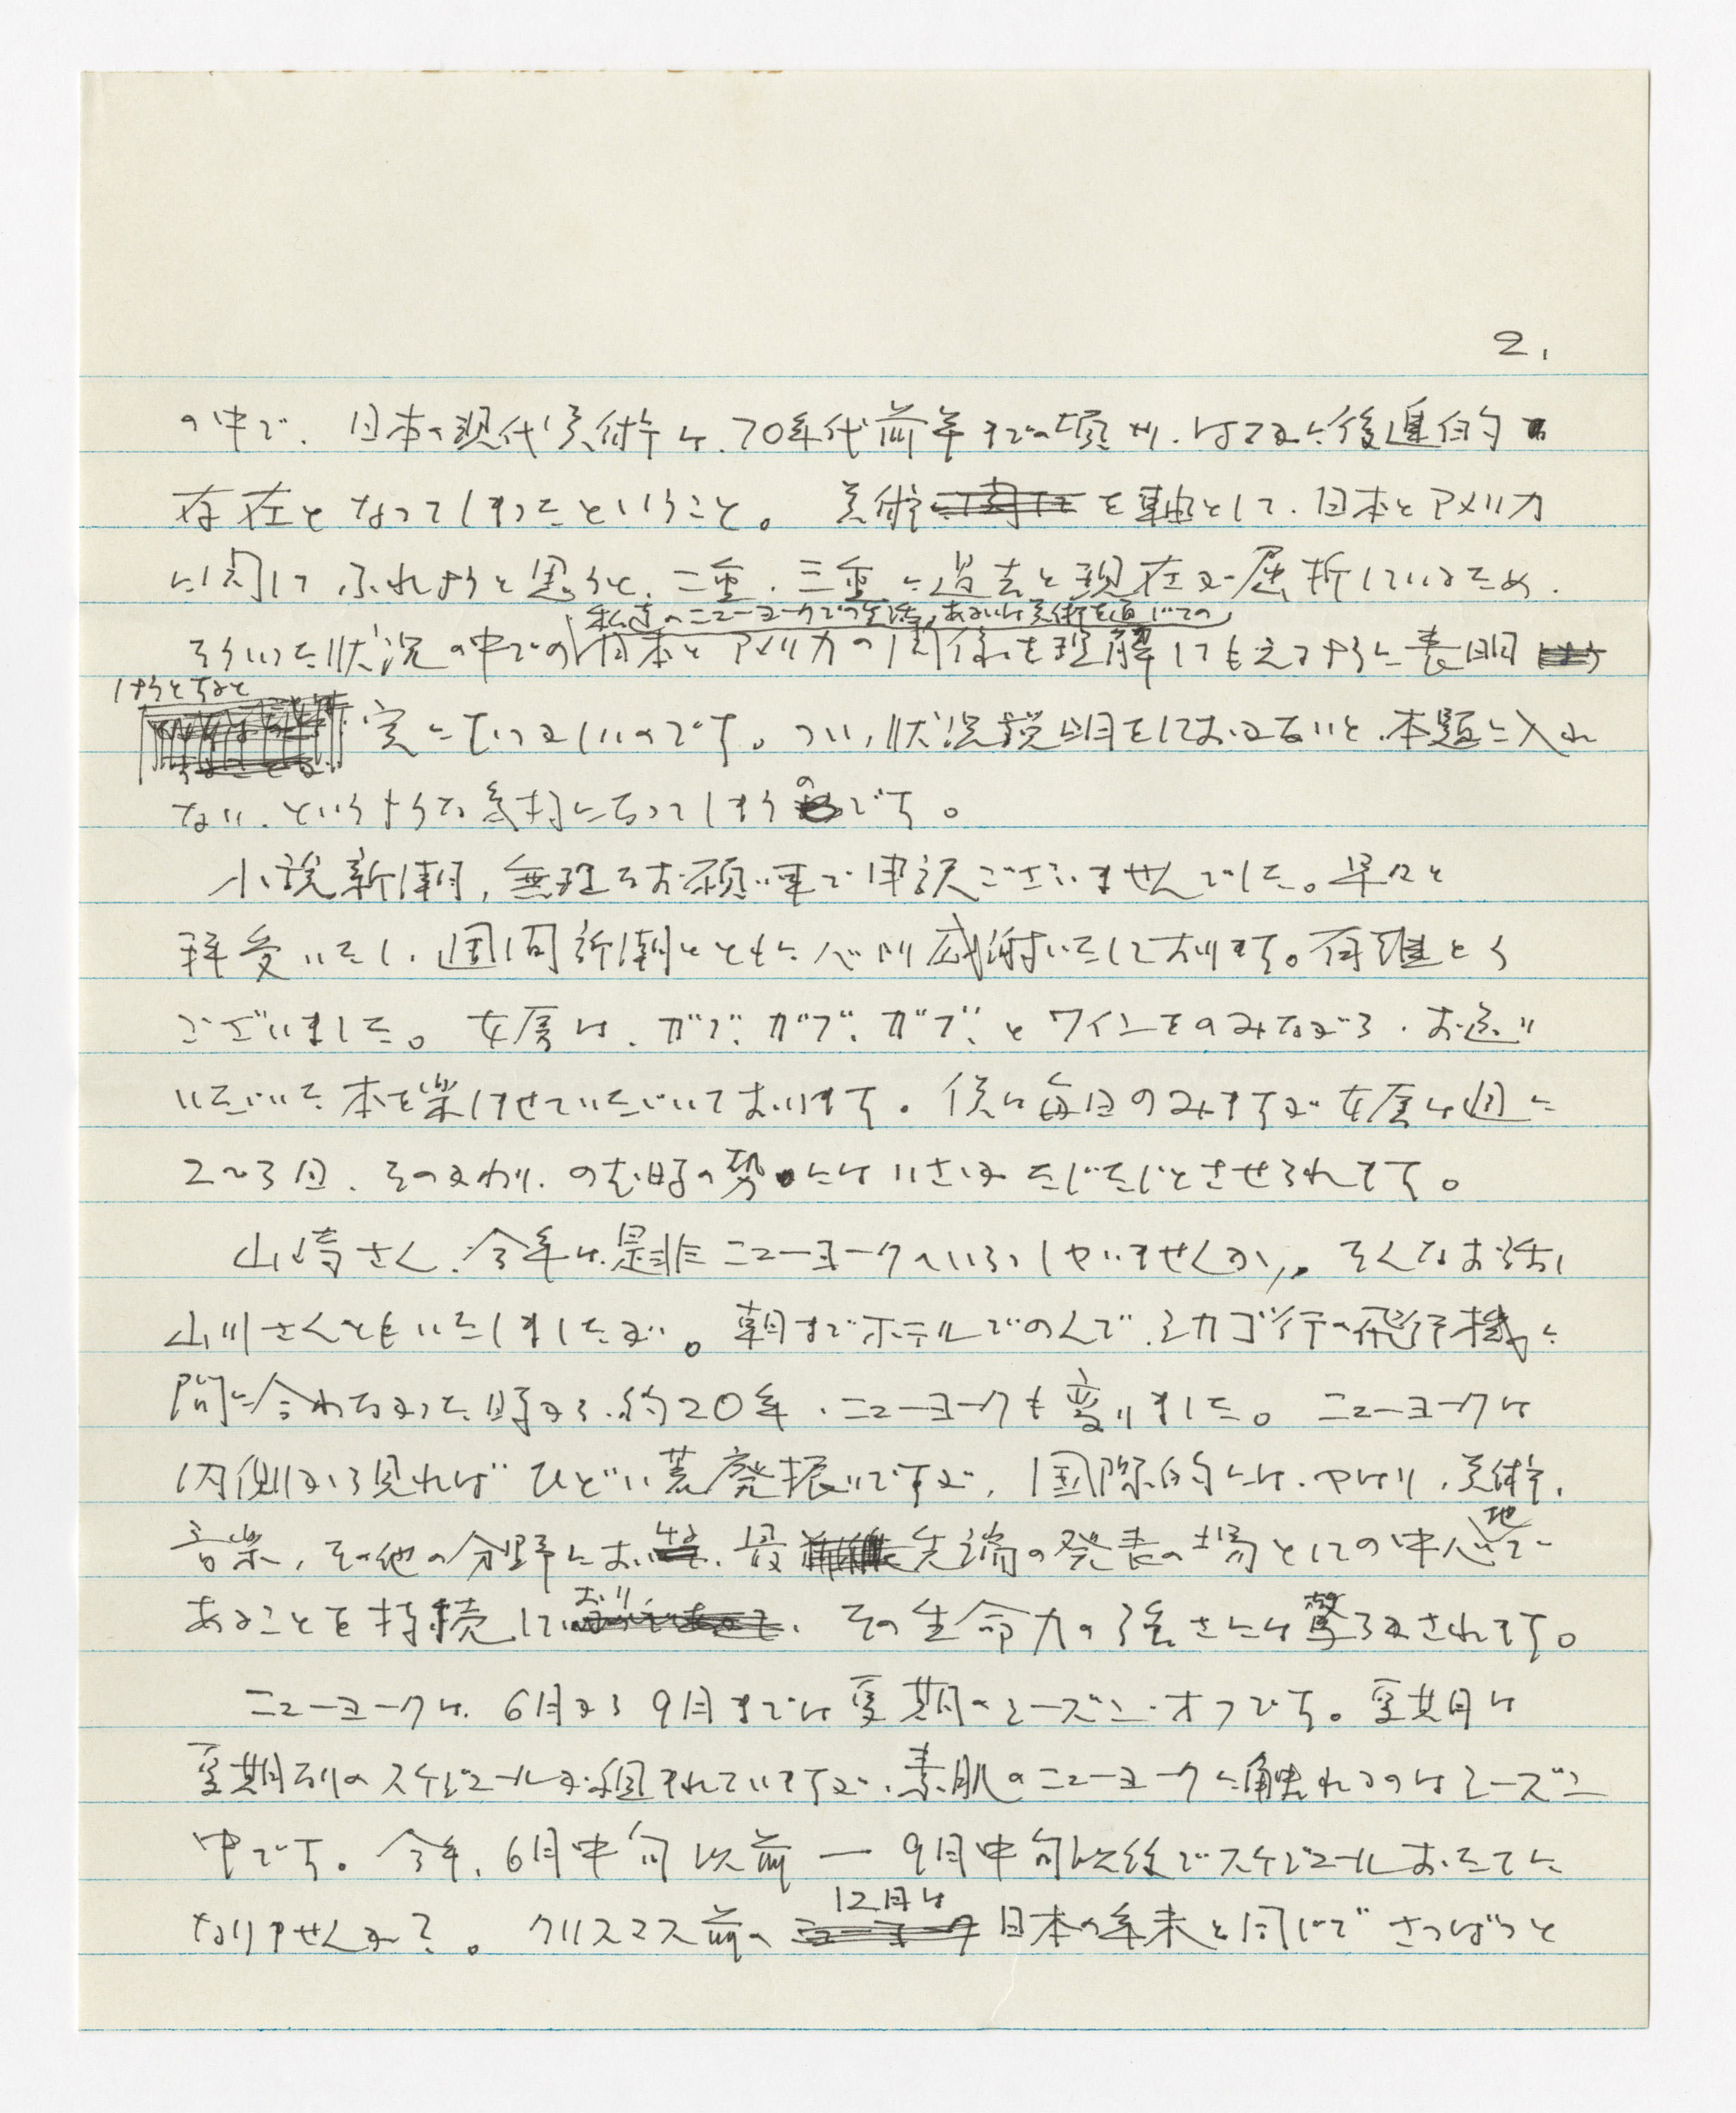 2.
の中で、日本の現代美術は、70年代前年までの頃より、はるかに後進的な
存在となってしまったということ。美術を軸として、日本とアメリカ
に関してふれようと思うと、二重、三重に過去と現在が屈折しているため、
私達のニューヨークでの生活、あるいは美術を通じての
そういった状況の中での日本とアメリカの関係を理解してもらえるように表明
しようとすると
実にもどかしいのです。つい、状況説明をしておかないと、本題に入れ
ない、というような気持になってしまうのです。
小説新潮、無理なお願い事で申訳ございませんでした。早々と
拝受いたし、週間新潮とともに心より感謝いたしております。有難とう
ございました。女房は、ガブ、ガブ、ガブ、とワインをのみながら、お送り
いただいた本を楽しませていただいております。僕は毎日のみますが女房は週に
2〜3回、そのかわり、のむ時の勢いにはいささかたじたじとさせられてます。
山崎さん、今年は是非ニューヨークへいらっしゃいませんか。そんなお話し
山川さんともいたしましたが。朝までホテルでのんで、シカゴ行の飛行機に
間に合わなかった時から、約20年、ニューヨークも変りました。ニューヨークは
内側から見ればひどい荒廃振りですが、国際的には、やはり、美術、
音楽、その他の分野における、最先端の発表の場としての中心地で
あることを持続しており、その生命力の強さには驚ろかされます。
ニューヨークは、6月から9月までは夏期のシーズン・オフです。夏期は
夏期なりのスケジュールが組まれていますが、素肌のニューヨークに触れるのはシーズン
中です。今年、6月中旬以前 ― 9月中旬以後でスケジュールおたてに
なりませんか?。クリスマス前の12月は日本の年末と同じでさっぱりと